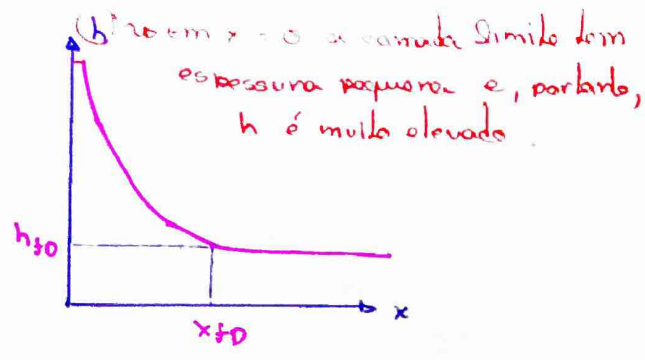 h em x = 0 a camada limite tem
espessura pequena e, portanto,
h é muito elevado.
hfD
x
xfD